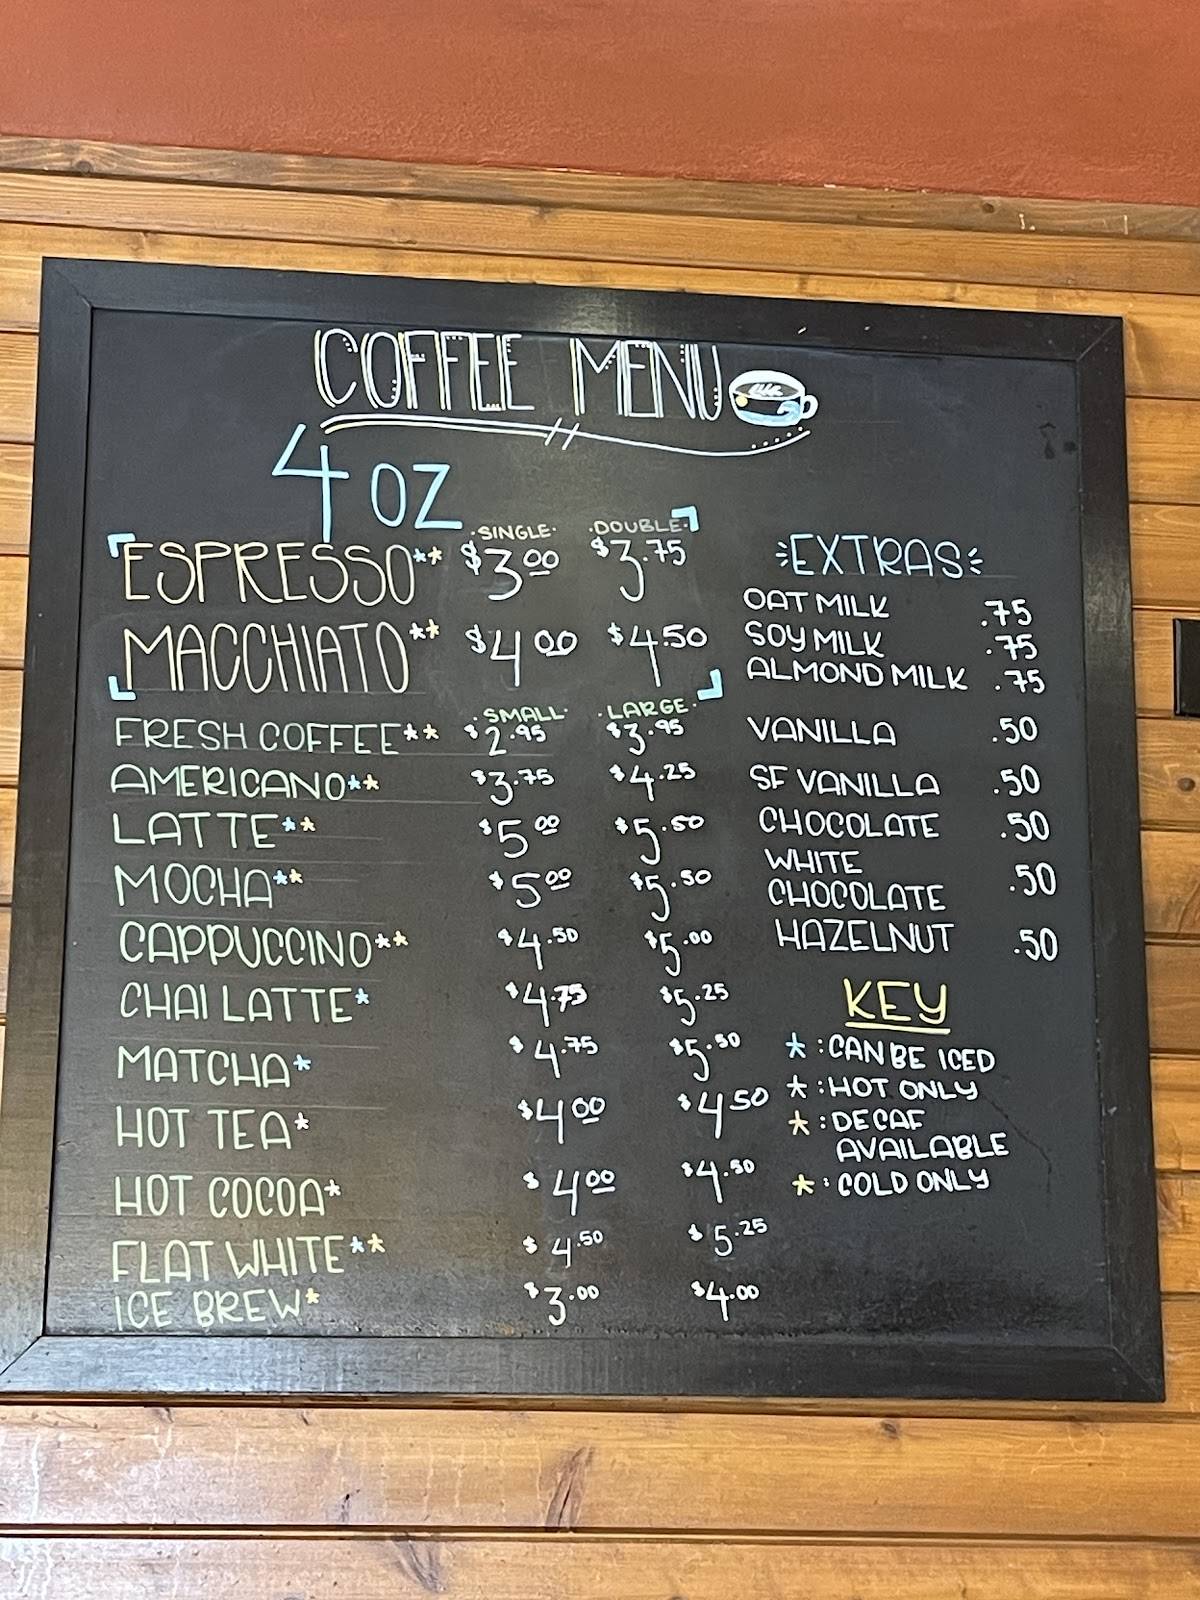 COFFEE MENU
4 OZ
·SINGLE· ·DOUBLE·
ESPRESSO** $3.00 $3.75
MACCHIATO** $4.00 $4.50
·SMALL· ·LARGE·
FRESH COFFEE** $2.95 $3.95
AMERICANO** $3.75 $4.25
LATTE** $5.00 $5.50
MOCHA** $5.00 $5.50
CAPPUCCINO** $4.50 $5.00
CHAI LATTE* $4.75 $5.25
MATCHA* $4.75 $5.50
HOT TEA* $4.00 $4.50
HOT COCOA* $4.00 $4.50
FLAT WHITE** $4.50 $5.25
ICE BREW* $3.00 $4.00
EXTRAS
OAT MILK .75
SOY MILK .75
ALMOND MILK .75
VANILLA .50
SF VANILLA .50
CHOCOLATE .50
WHITE
CHOCOLATE .50
HAZELNUT .50
KEY
*: CAN BE ICED
*: HOT ONLY
*: DECAF
AVAILABLE
*: COLD ONLY